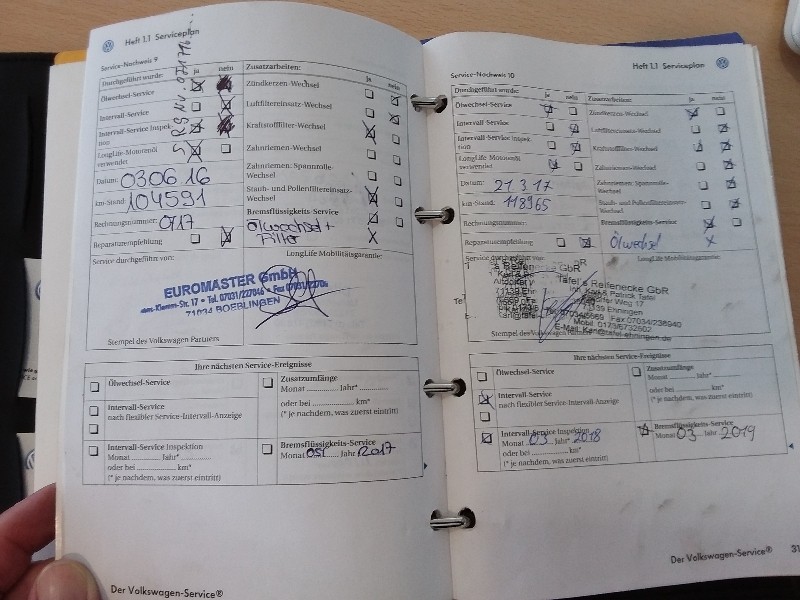 Heft 1.1 Serviceplan
Service-Nachweis 9
Durchgeführt wurde: ja nein
Ölwechsel-Service
Intervall-Service
Intervall-Service Inspektion
LongLife-Motorenöl verwendet
Datum: 030616
km-Stand: 104591
Rechnungsnummer: 0917
Reparaturempfehlung
Zusatzarbeiten: ja nein
Zündkerzen-Wechsel
Luftfiltereinsatz-Wechsel
Kraftstofffilter-Wechsel
Zahnriemen-Wechsel
Zahnriemen: Spannrolle-
Wechsel
Staub- und Pollenfiltereinsatz-
Wechsel
Bremsflüssigkeits-Service
Ölwechsel +
Filter X
Service durchgeführt von: LongLife Mobilitätsgarantie:
EUROMASTER GmbH
Klemm-Str. 17 • Tel. 07031/227046 • Fax 07031/
71034 BOEBLINGEN
Stempel des Volkswagen Partners
Ihre nächsten Service-Ereignisse
Ölwechsel-Service
Intervall-Service
nach flexibler Service-Intervall-Anzeige
Intervall-Service Inspektion
Monat ............ Jahr* ............
oder bei ............ km*
(* je nachdem, was zuerst eintritt)
Zusatzumfänge
Monat ............ Jahr* ............
oder bei ............ km*
(* je nachdem, was zuerst eintritt)
Bremsflüssigkeits-Service
Monat 05 Jahr 2017
Der Volkswagen-Service®
Heft 1.1 Serviceplan
Service-Nachweis 10
Durchgeführt wurde: ja nein
Ölwechsel-Service
Intervall-Service
Intervall-Service Inspek-
tion
LongLife Motorenöl
verwendet
Datum: 21 3 17
km-Stand: 118965
Rechnungsnummer:
Reparaturempfehlung
Zusatzarbeiten: ja nein
Zündkerzen-Wechsel
Luftfiltereinsatz-Wechsel
Kraftstofffilter-Wechsel
Zahnriemen-Wechsel
Zahnriemen: Spannrolle-
Wechsel
Staub- und Pollenfiltereinsatz-
Wechsel
Bremsflüssigkeits-Service
Ölwechsel X
Service durchgeführt von: LongLife Mobilitätsgarantie:
Tafel's Reifenecke GbR
Inh. Karl & Patrick Tafel
Weg 17
71139 Ehningen
Tel. 07034/5669 Fax 07034/238940
Mobil 0173/6732602
E-Mail: Karl@tafel-ehningen.de
Stempel des Volkswagen
Ihre nächsten Service-Ereignisse
Ölwechsel-Service
Intervall-Service
nach flexibler Service-Intervall-Anzeige
Intervall-Service Inspektion
Monat 03 Jahr* 2018
oder bei ............ km*
(* je nachdem, was zuerst eintritt)
Zusatzumfänge
Monat ............ Jahr* ............
oder bei ............ km*
(* je nachdem, was zuerst eintritt)
Bremsflüssigkeits-Service
Monat 03 Jahr 2019
Der Volkswagen-Service® 31